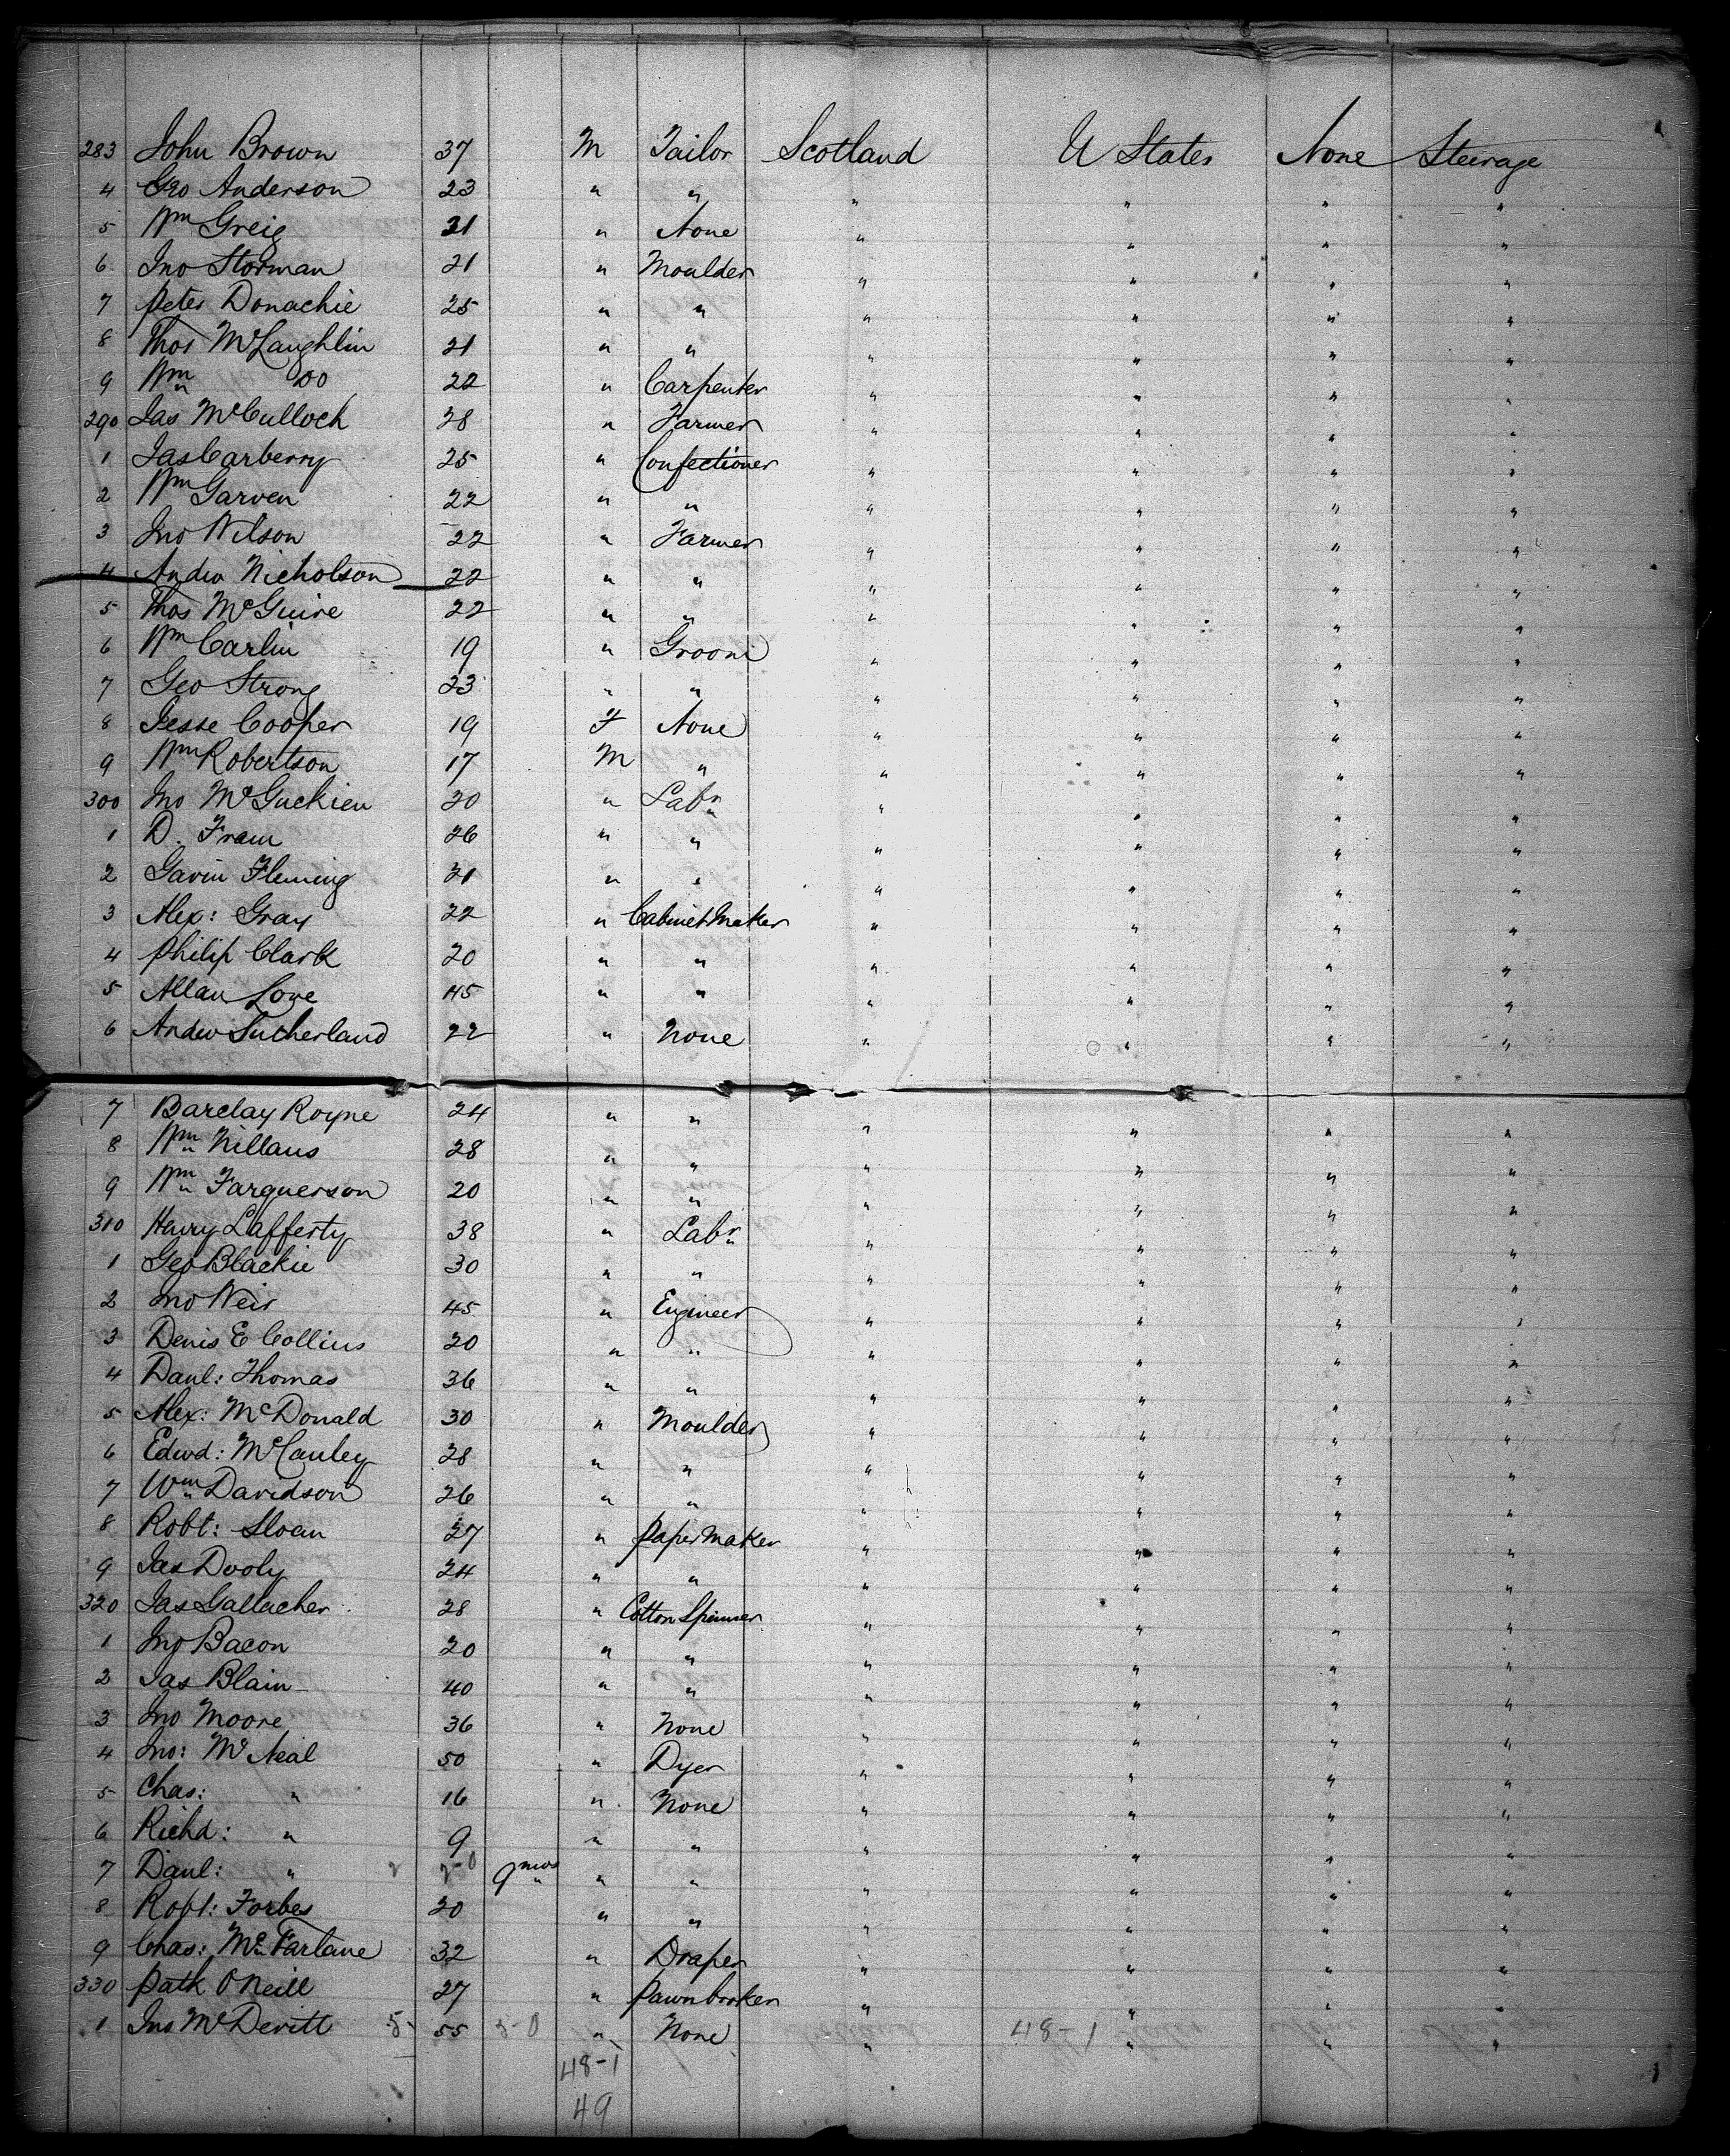 283 John Brown 37 M Tailor Scotland U States None Steerage
4 Geo Anderson 23 " " " " " "
5 Wm Greig 21 " None " " " "
6 Jno Storman 21 " Moulder " " " "
7 Peter Donachie 25 " " " " " "
8 Thos McLaughlin 21 " " " " " "
9 Wm Do 22 " Carpenter " " " "
290 Jas McCulloch 28 " Farmer " " " "
1 Jas Carberry 25 " Confectioner " " " "
2 Wm Garven 22 " " " " " "
3 Jno Wilson 22 " Farmer " " " "
4 Andw Nicholson 22 " " " " " "
5 Thos McGuire 22 " " " " " "
6 Wm Carlin 19 " Groom " " " "
7 Geo Strong 23 " " " " " "
8 Jesse Cooper 19 F None " " " "
9 Wm Robertson 17 M " " " " "
300 Jno McGuckien 20 " Labr " " " "
1 D. Fram 26 " " " " " "
2 Gavin Fleming 21 " " " " " "
3 Alex: Gray 22 " Cabinet Maker " " " "
4 Philip Clark 20 " " " " " "
5 Allan Love 45 " " " " " "
6 Andw Sutherland 22 " None " " " "
7 Barclay Royne 24 " " " " " "
8 Wm Nillans 28 " " " " " "
9 Wm Farquerson 20 " " " " " "
310 Henry Lafferty 38 " Labr " " " "
1 Geo Blackie 30 " " " " " "
2 Jno Weir 45 " Engineer " " " "
3 Denis E Collins 20 " " " " " "
4 Danl: Thomas 36 " " " " " "
5 Alex: McDonald 30 " Moulder " " " "
6 Edwd: McCauley 28 " " " " " "
7 Wm Davidson 26 " " " " " "
8 Robt: Sloan 27 " Paper Maker " " " "
9 Jas Dooly 24 " " " " " "
320 Jas Gallacher 28 " Cotton Spinner " " " "
1 Jno Bacon 20 " " " " " "
2 Jas Blain 40 " " " " " "
3 Jno Moore 36 " None " " " "
4 Jno: McNeal 50 " Dyer " " " "
5 Chas: " 16 " None " " " "
6 Richd: " 9 " " " " " "
7 Danl: " 9 mos " " " " " "
8 Robt: Forbes 20 " " " " " "
9 Chas: McFarlane 32 " Draper " " " "
330 Patk O'Neill 27 " Pawnbroker " " " "
1 Jno McDevitt 5 55 5-0 " None " 48-1 " " "
48-1
49